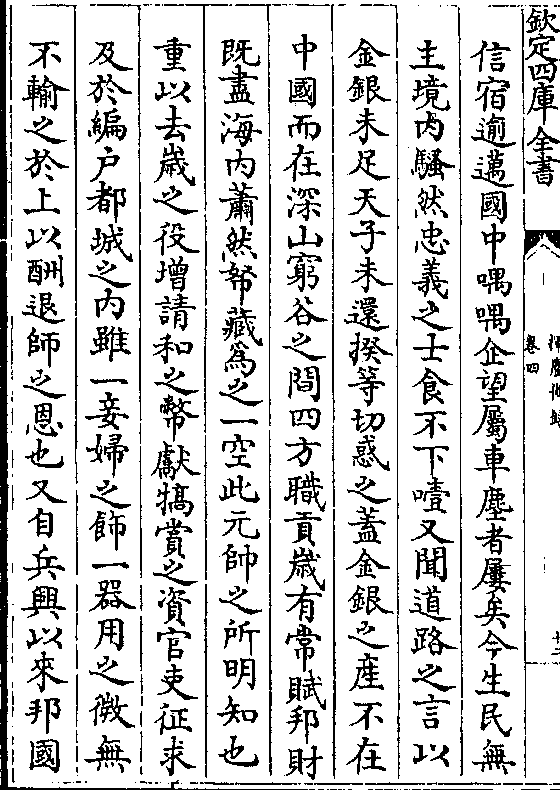 欽定四庫全書
卷四
信宿逾邁國中喁喁企望屬車塵者屢矣今生民無
主境内騷然忠義之士食不下噎又聞道路之言以
金銀未足天子未還揆等切惑之蓋金銀之産不在
中國而在深山窮谷之間四方職貢歳有常賦邦財
既盡海内蕭然帑藏為之一空此元帥之所明知也
重以去歳之役增請和之幣獻犒賞之資官吏征求
及於編户都城之内雖一妾婦之飾一器用之微無
不輸之於上以酬退師之恩也又自兵興以來邦國